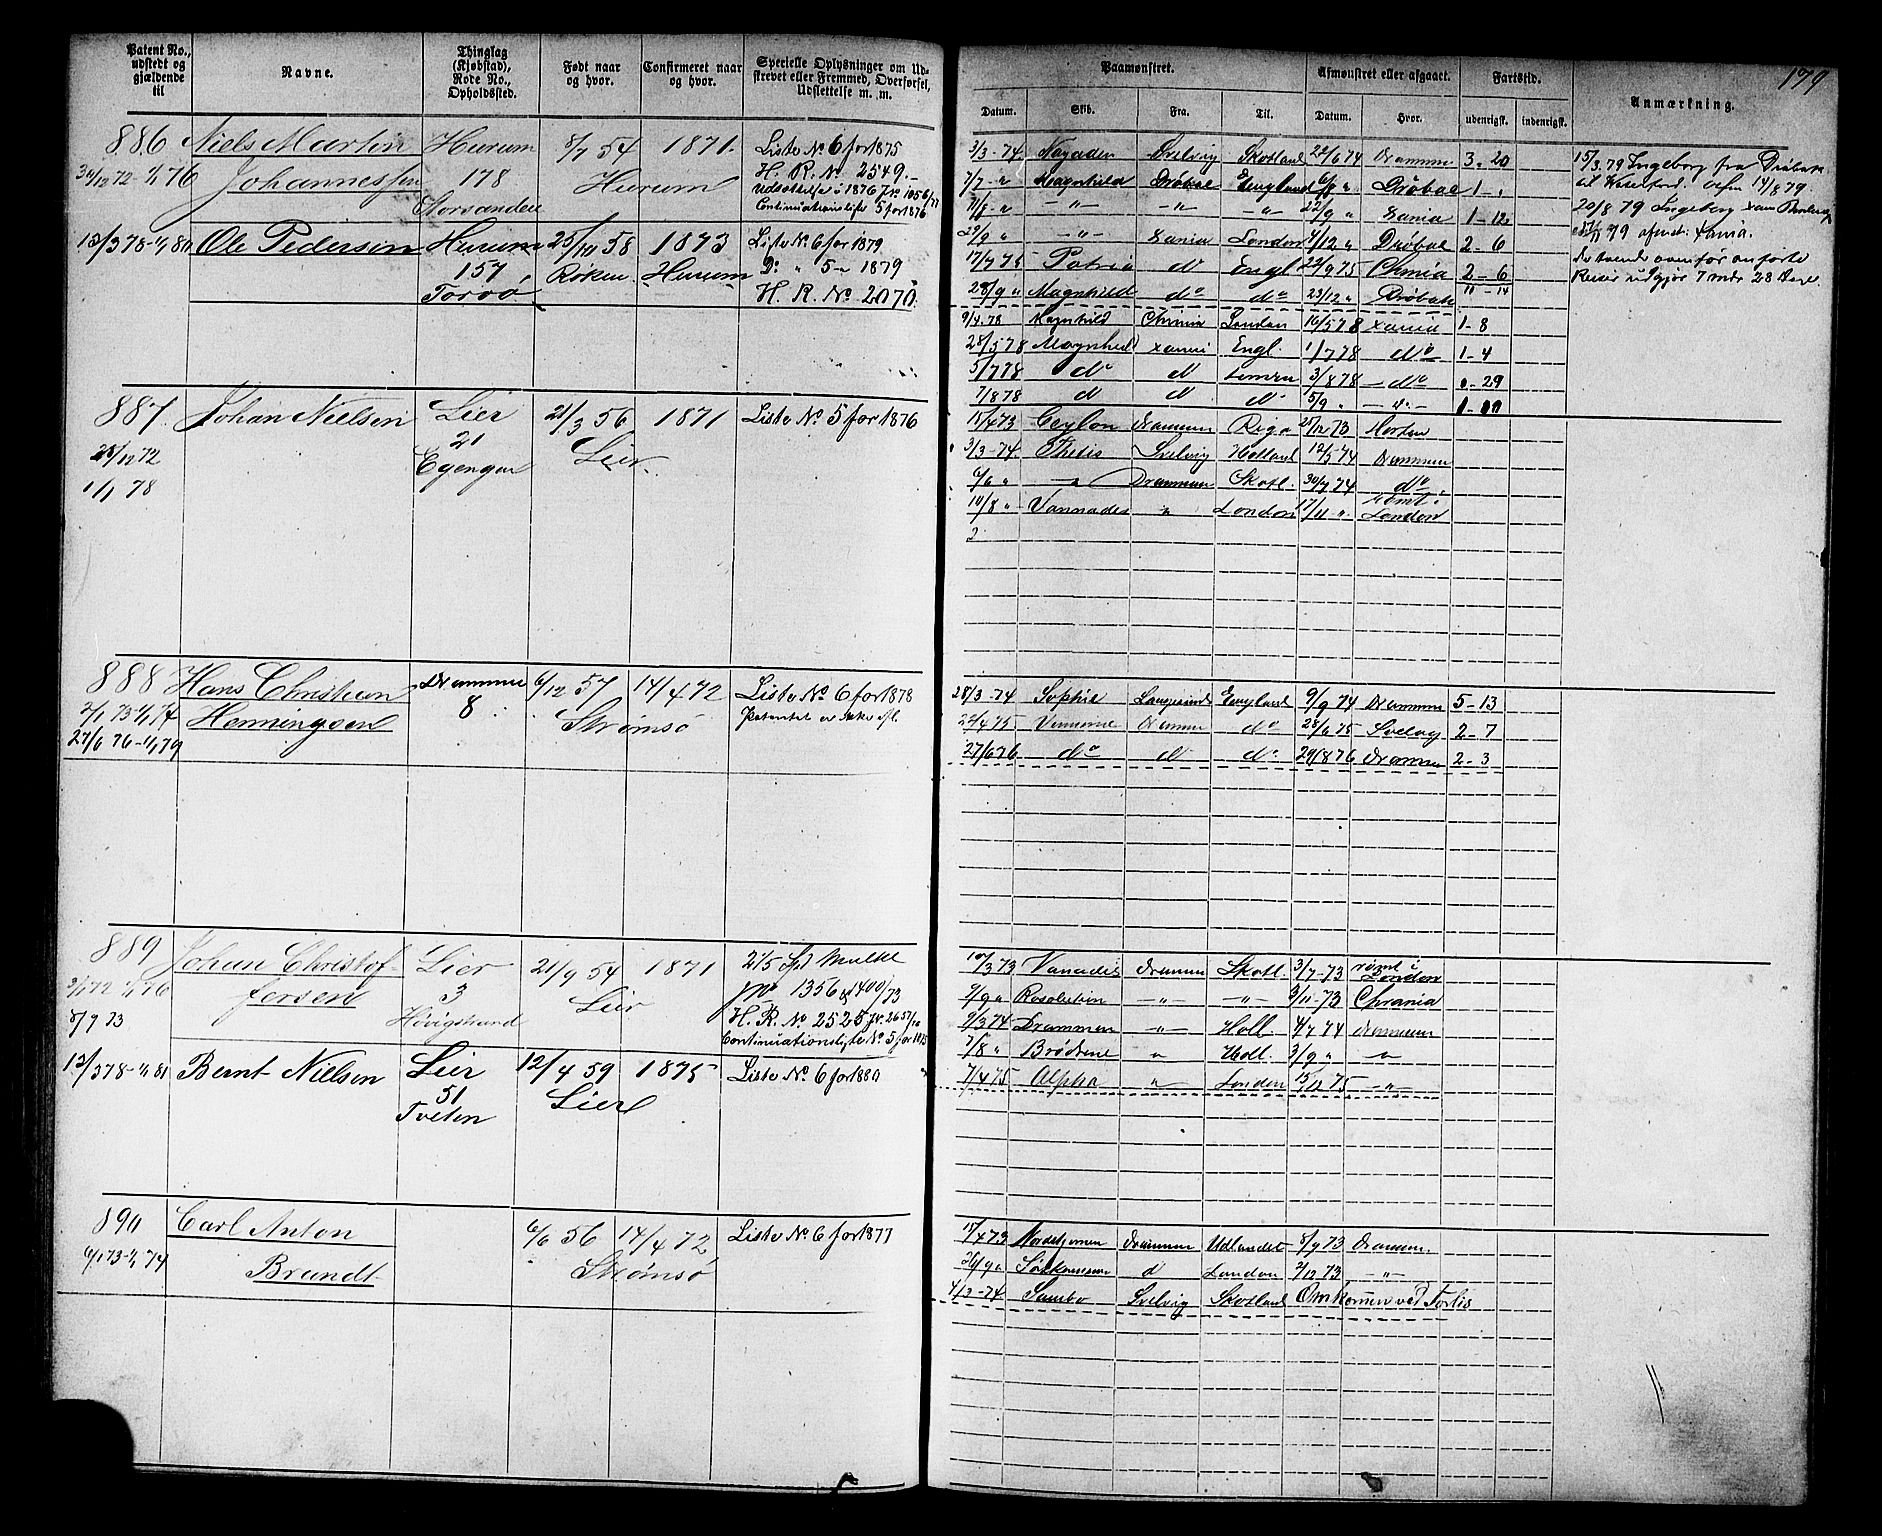 179
Patent No., udstedt og gjældende til
Navne.
Thinglag (Kjøbstad), Rode No., Opholdssted.
Født naar og hvor.
Confirmeret naar og hvor.
Specielle Oplysninger om Udstrevet eller Fremmed, Overførsel, Udslettelse m. m.
Paamønstret.
Afmønstret eller afgaaet.
Fartstid.
Anmærkning.
Datum. Skib. Fra. Til. Datum. Hvor. udenrigsk. indenrigsk.
886 Niels Martin Hurum 8/7 54 1871. Liste No 6 for 1875
Johannessen 178 Hurum H. R. No 2549.-
Storsanden
Continuationsliste 5 for 1876
13/3 78-1/1 80 Ole Pedersen Hurum 25/10 58 1873 Liste No. 6 for 1879
157 Røken Hurum Do " 5 " 1879
Tovoø H. R. No 2070.
3/3-74 Nayaden Svelvig Skotland 22/6 74 Drammen 3-20
7/7-" Magnhild Drøbac England 6/8 " Drøbac 1-"
11/8-" -"- -"- -"- 22/9 " Xania 1-12
29/9 " -"- Xania London 4/12 " Drøbac 2-6
17/7 75 Patria do Engl 22/9 75 Chnia 2-6
28/9 " Magnhild do do 23/12 " Drøbak 11-14
9/4-78 Magnhild Chrnia London 14/5 78 Xania 1-8
28/5 78 Magnhild Xania Engl. 1/7 78 do 1-4
5/7 78 do do London 3/8 78 -do- 0-29
7/8 78 do do do 5/9 " -"-
15/3.79 Ingeborg fra Drøbak
til Waterford. afm 14/8 79.
20/8 79 Ingeborg
79 afmst: Xania.
de tvende ovenfor anførte
Reiser udgjør 7 mdr 28 Dage.
887. Johan Nielsen Lier 21/3 56 1871 Liste No. 5 for 1876
28/12 72 21 Lier.
1/1 78 Egengen
15/4 73 Ceylon Drammen Riga 25/12 73 Horten
3/3-74. Thetis Svelvig Holland 12/5-74 Drammen
6/6 " -"- Drammen Skotl. 30/7 74 do
10/8 " Vannades " London 17/11-". Rømt i London
888 Hans Christian Drammen 6/12 57 14/4 72 Liste No. 6 for 1878
2/1 73-1/1 74 Henningsen 8 Strømsø
27/6 76-1/1 79
28/3-74 Sophie Langesund England 9/9 74 Drammen 5-13
22/4 75 Drammen do 28/6 75 Svelvig 2-7
27/6 76 do do do 29/8 76 Drammen 2-3
889 Johan Christof- Lier 21/9 54 1871 2/5 Spd Mulkt
fersen 3 Lier JNo 1356 & 1400/73
8/9 73 Høvigstrand H. R. No 2525
Continuationsliste No. 5 for 1875
13/3 78-1/1 81 Bernt Nielsen Lier 12/4 59 1875 Liste No. 6 for 1880
51 Lier
Tveten
10/3 73 Vanadis Drammen Skotl. 3/7-73 rømt i London
9/9 " Resolution -"- -"- 3/11-73 Chrania
9/3 74 Drammen -"- Holl 4/7 74 Drammen
7/8 " Brødrene " Holl. 3/9 " -"-
7/4 75 Alpha " London 15/12 75 -"-
890 Carl Anton 6/6 56 14/4 72 Liste No. 6 for 1877
6/1 73-1/1 74 Brandt Strømsø
17/4 73 Nordstjernen Drammen Udlandet 8/9 73 Drammen.
26/9 " do London 2/12 73 -"-
4/3-74 Sambo Svelvig Skotland Omkommen ved Forlis